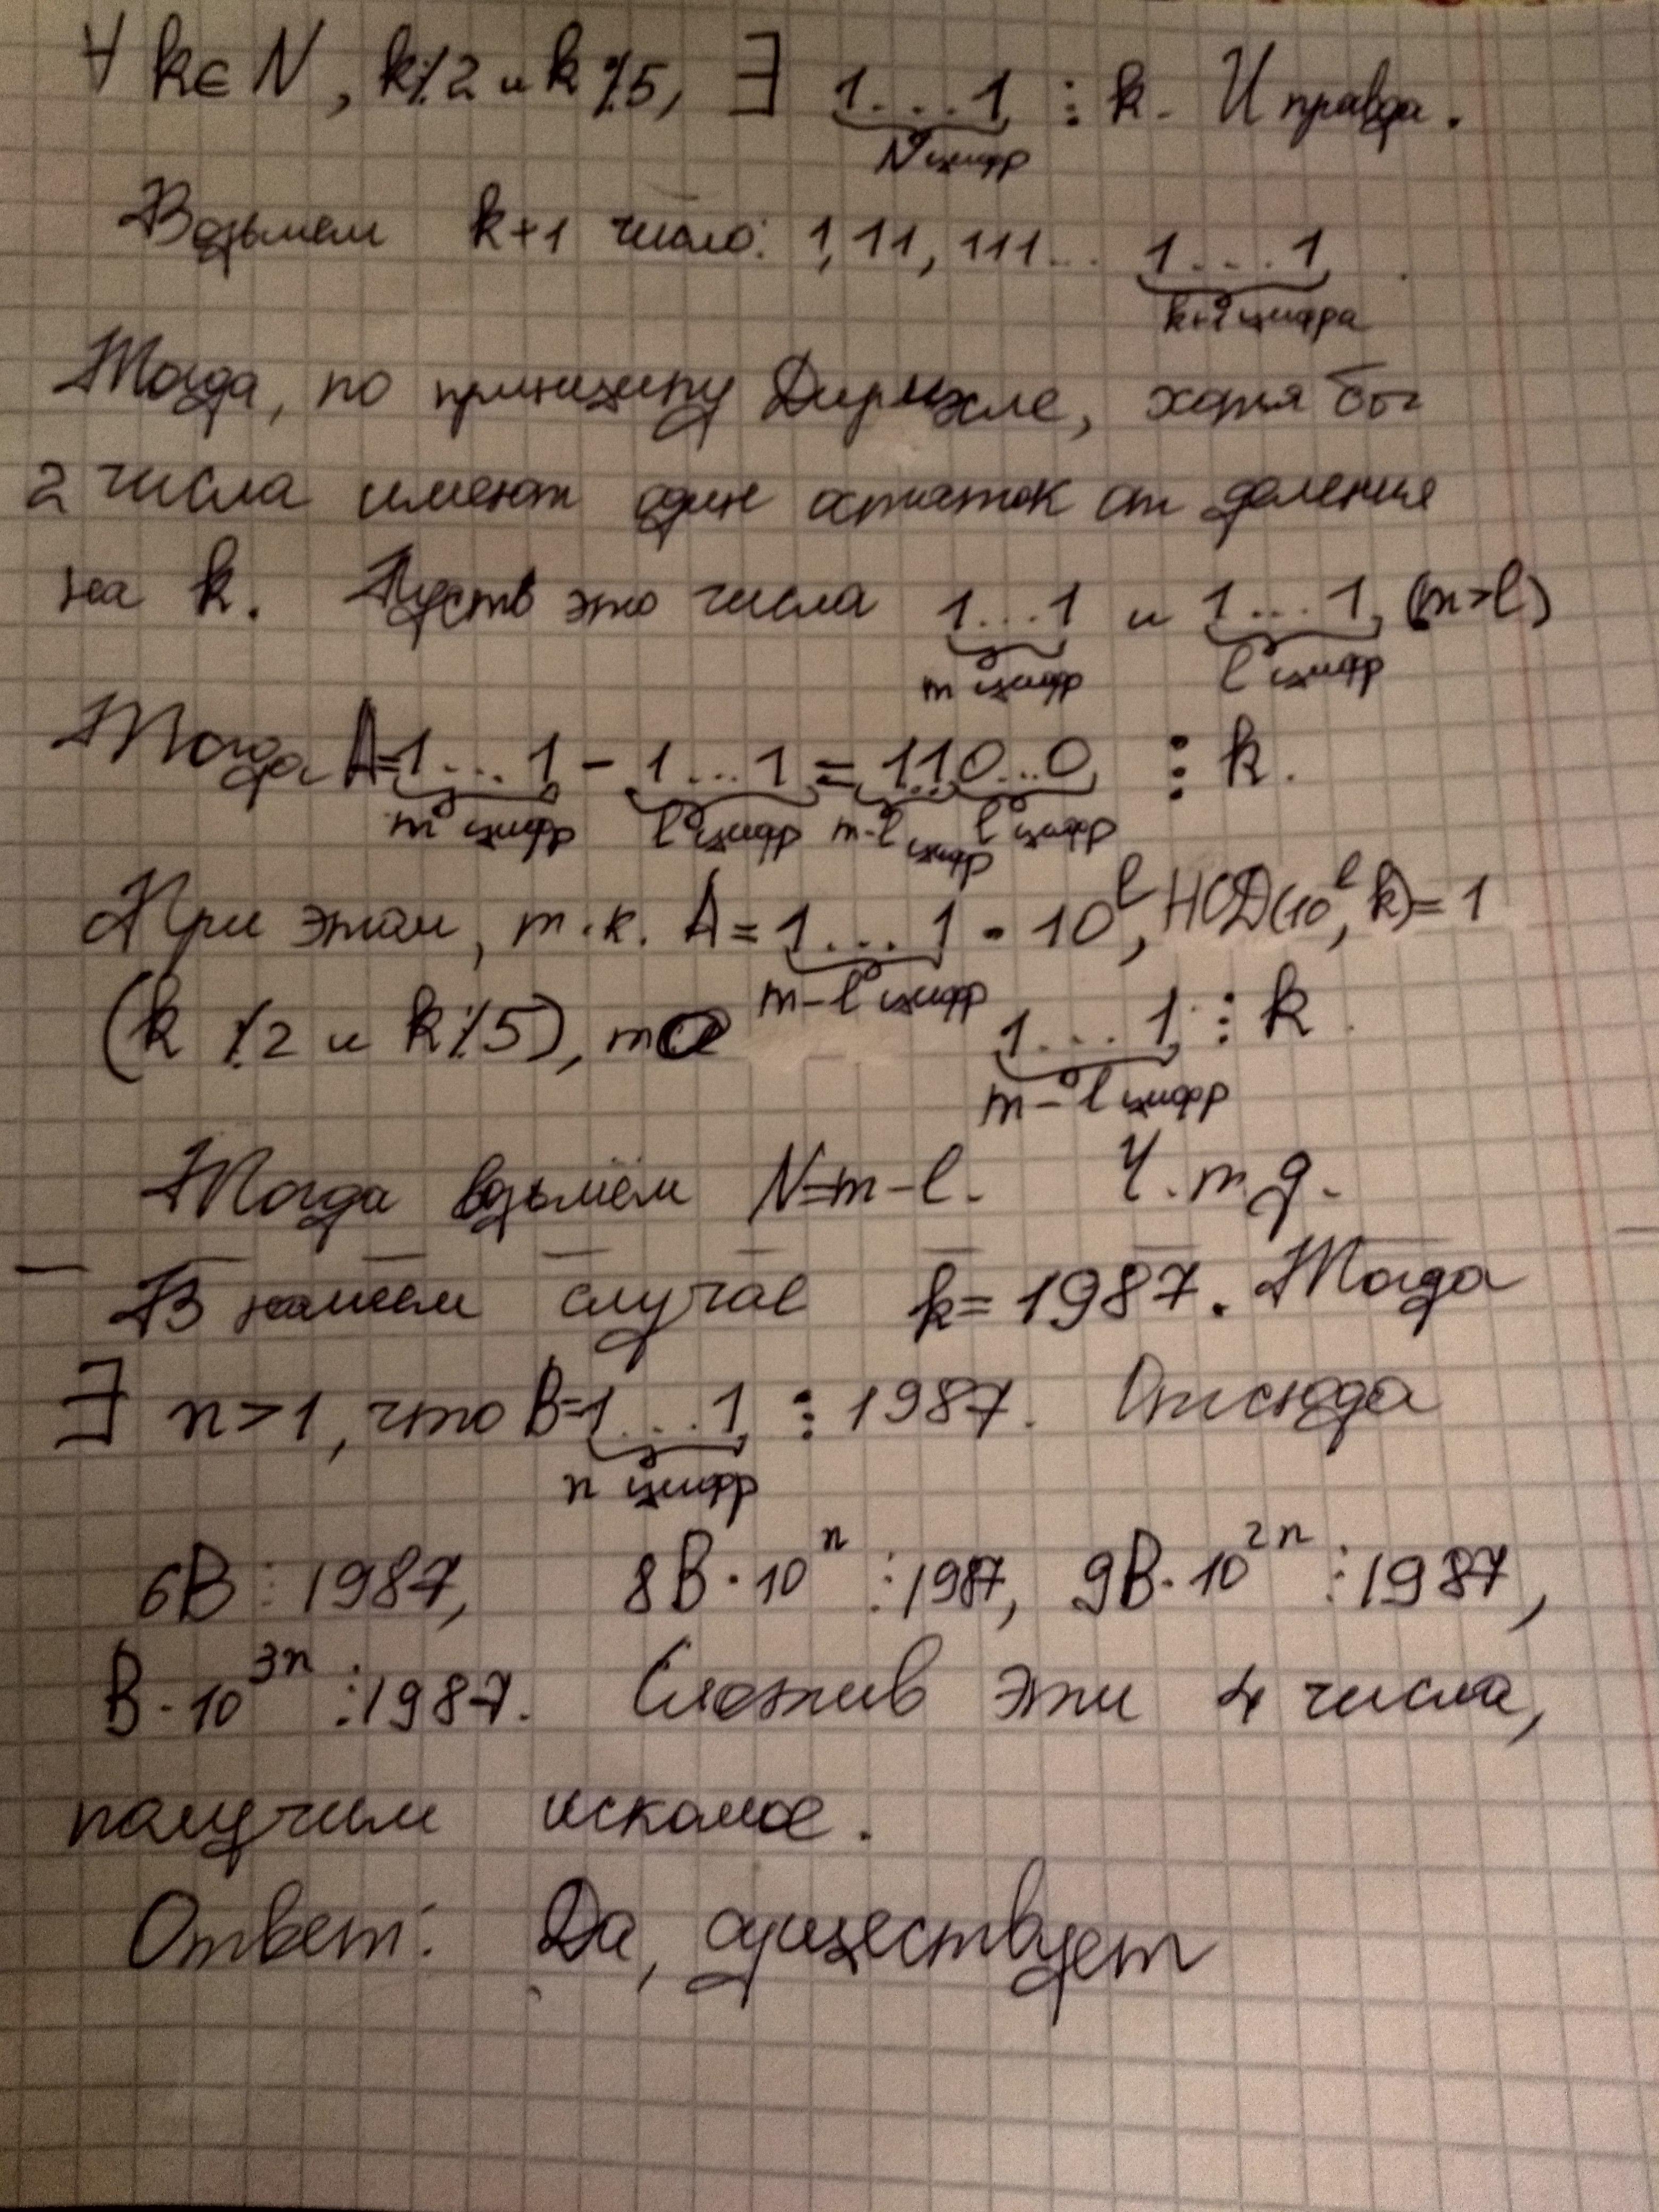 ∀ k∈N, k⋮̸2 и k⋮̸5, ∃ 1...1 ⋮ k. И правда.
N цифр
Возьмем k+1 число: 1, 11, 111... 1...1.
k+1 цифра
Тогда, по принципу Дирихле, хотя бы
2 числа имеют один остаток от деления
на k. Пусть это числа 1...1 и 1...1 (m>l)
m цифр l цифр
Тогда A=1...1 - 1...1 = 1..10...0 ⋮ k.
m цифр l цифр m-l цифр l цифр
При этом, т.к. A = 1...1 · 10^l, НОД(10^l, k)=1
m-l цифр
(k ⋮̸2 и k⋮̸5), то 1...1 ⋮ k
m-l цифр
Тогда возьмём N=m-l. Ч.т.д.
В нашем случае k=1987. Тогда
∃ n>1, что B=1...1 ⋮ 1987. Отсюда
n цифр
6B ⋮ 1987, 8B·10^n ⋮ 1987, 9B·10^2n ⋮ 1987,
B·10^3n ⋮ 1987. Сложив эти 4 числа,
получим искомое.
Ответ: Да, существует